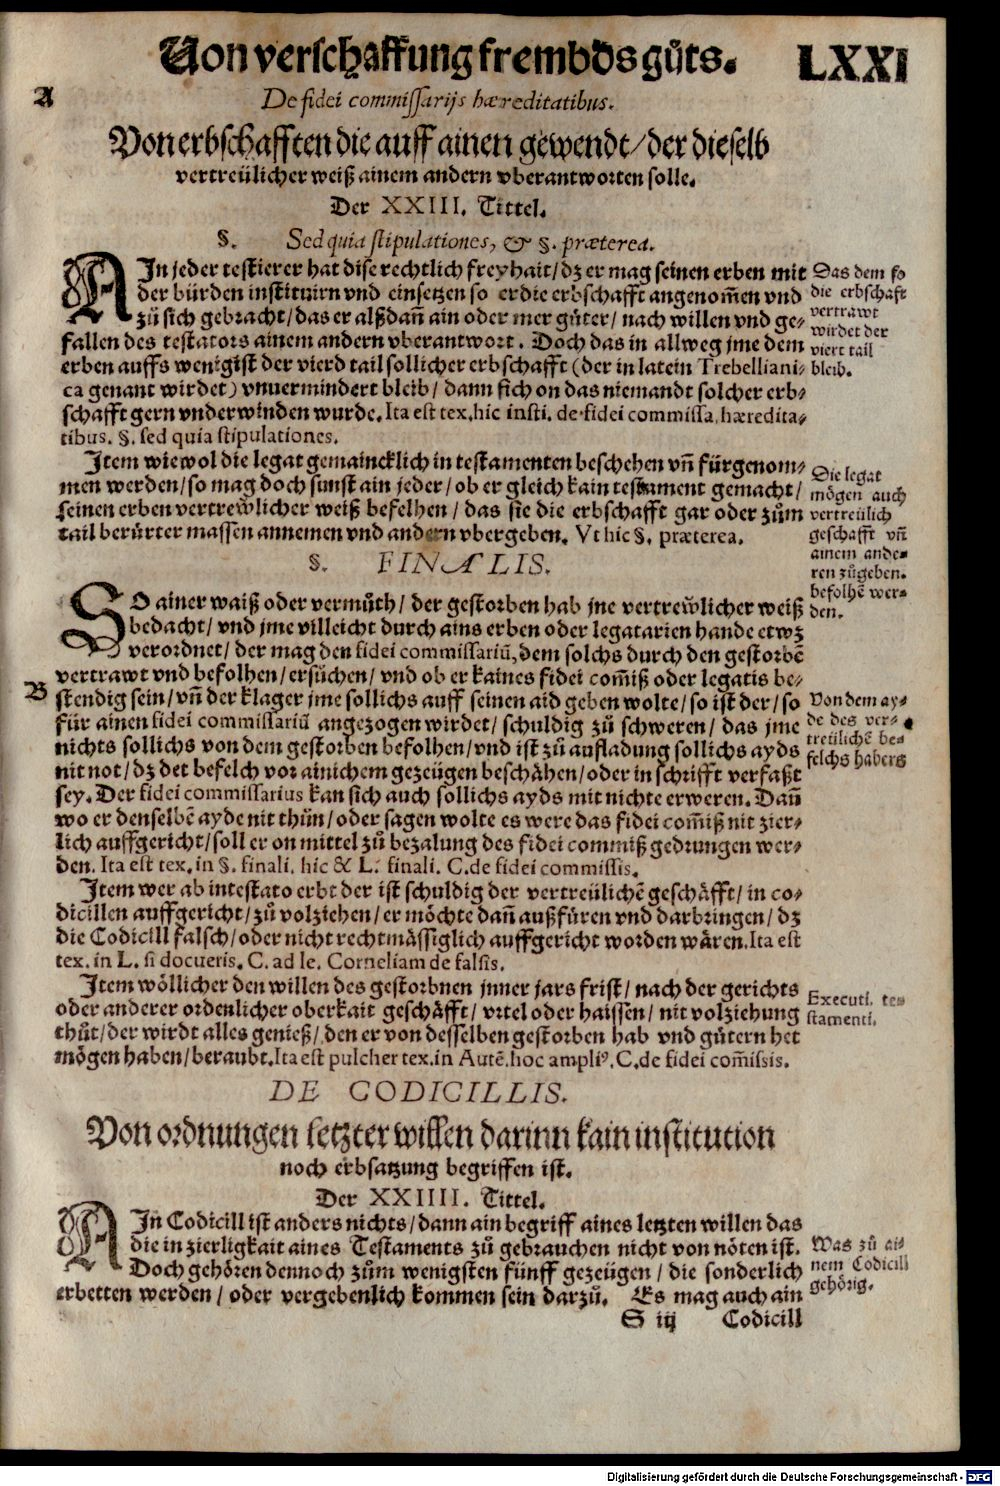 Von verschaffung frembds gůts. LXXI
A
De fidei commissarijs hæreditatibus.
Von erbschafften die auff ainen gewendt/ der dieselb
vertreülicher weiß ainem andern vberantworten solle.
Der XXIII. Tittel.
§. Sed quia stipulationes, & §. præterea.
AIn jeder testierer hat dise rechtlich freyhait/ dz er mag seinen erben mit
der bürden instituirn vnd einsetzen so er die erbschafft angenom̃en vnd
zů sich gebracht/ das er alßdañ ain oder mer gůter/ nach willen vnd ge-
fallen des testators ainem andern vberantwort. Doch das in allweg jme dem
erben auffs wenigist der vierd tail sollicher erbschafft (der in latein Trebelliani-
ca genant wirdet) vnuermindert bleib/ dann sich on das niemandt solcher erb-
schafft gern vnderwinden wurde. Ita est tex. hic insti. de fidei commissa. hæredita-
tibus. §. sed quia stipulationes.
Das dem so
die erbschaft
vertrawt
wirdet der
viert tail
bleib.
Item wiewol die legat gemaincklich in testamenten beschehen vñ fürgenom-
men werden/ so mag doch sunst ain jeder/ ob er gleich kain testament gemacht/
seinen erben vertrewlicher weiß befelhen/ das sie die erbschafft gar oder zům
tail berürter massen annemen vnd andern vbergeben. Vt hic §. præterea.
Die legat
mögen auch
vertreülich
geschafft vñ
ainem ande-
ren zůgeben.
befolhẽ wer-
den.
§. FINALIS.
SO ainer waiß oder vermůth/ der gestorben hab jne vertrewlicher weiß
bedacht/ vnd jme villeicht durch ains erben oder legatarien hande etwz
verordnet/ der mag den fidei commissariũ, dem solchs durch den gestorbẽ
vertrawt vnd befolhen/ ersůchen/ vnd ob er kaines fidei com̃iß oder legatis be-
B
stendig sein/ vñ der klager jme sollichs auff seinen aid geben wolte/ so ist der/ so
für ainen fidei commissariũ angezogen wirdet/ schuldig zů schweren/ das jme
nichts sollichs von dem gestorben befolhen/ vnd ist zů aufladung sollichs ayds
nit not/ dz det befelch vor ainichem gezeügen beschähen/ oder in schrifft verfaßt
sey. Der fidei commissarius kan sich auch sollichs ayds mit nichte erweren. Dañ
wo er denselbẽ ayde nit thůn/ oder sagen wolte es were das fidei com̃iß nit zier-
lich auffgericht/ soll er on mittel zů bezalung des fidei commiß gedrungen wer-
den. Ita est tex. in §. finali. hic & L. finali. C. de fidei commissis.
Von dem ay-
de des ver-
treülichẽ be-
felchs habers
Item wer ab intestato erbt der ist schuldig der vertreülichẽ geschäfft/ in co-
dicillen auffgericht/ zů volziehen/ er möchte dañ außfüren vnd darbringen/ dz
die Codicill falsch/ oder nicht rechtmässiglich auffgericht worden wären. Ita est
tex. in L. si docueris. C. ad le. Corneliam de falsis.
Item wöllicher den willen des gestorbnen jnner jars frist/ nach der gerichts
oder anderer ordenlicher oberkait geschäfft/ vrtel oder haissen/ nit volziehung
thůt/ der wirdt alles genieß/ den er von desselben gestorben hab vnd gůtern het
mögen haben/ beraubt. Ita est pulcher tex. in Autẽ. hoc ampli⁹. C. de fidei com̃issis.
Executi. te-
stamenti.
DE CODICILLIS.
Von ordnungen letzter willen darinn kain institution
noch erbsatzung begriffen ist.
Der XXIIII. Tittel.
AIn Codicill ist anders nichts/ dann ain begriff aines letzten willen das
die in zierligkait aines Testaments zů gebrauchen nicht von nöten ist.
Doch gehören dennoch zům wenigsten fünff gezeügen/ die sonderlich
erbetten werden/ oder vergebenlich kommen sein darzů. Es mag auch ain
Was zů ai-
nem Codicill
gehörig.
S iij Codicill
Digitalisierung gefördert durch die Deutsche Forschungsgemeinschaft - DFG